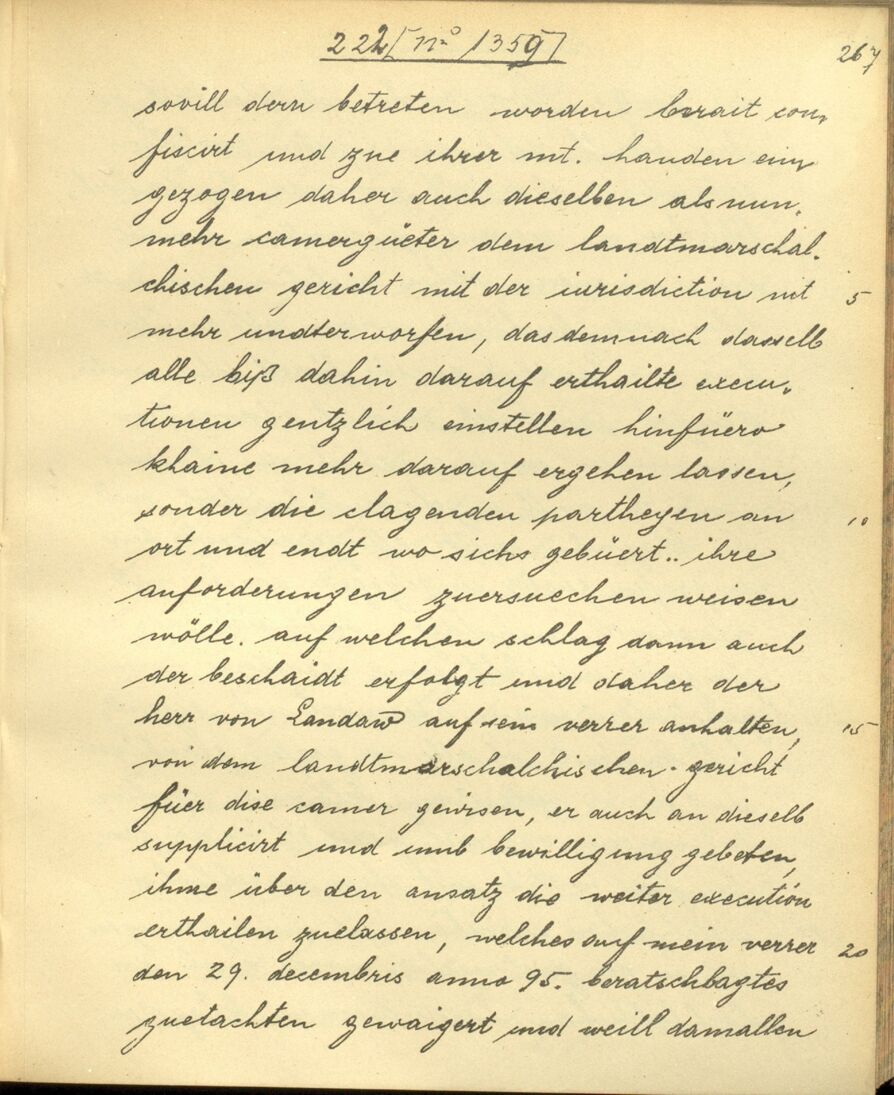 222 [nº 1359]
267
sovill dern betreten worden berait con-
fiscirt und zue ihrer mt. handen ein
gezogen daher auch dieselben als nun-
mehr camergüeter dem landtmarschal-
chischen gericht mit der iurisdiction nit 5
mehr undterworfen, das demnach dasselb
alle biß dahin darauf erthailte execu-
tionen gentzlich einstellen hinfüero
khaine mehr darauf ergehen lassen,
sonder die clagenden partheyen an 10
ort und endt wo sichs gebüert.. ihre
anforderungen zuersuechen weisen
wölle. auf welchen schlag dann auch
der beschaidt erfolgt und daher der
herr von Landaw auf sein verrer anhalten, 15
von dem landtmarschalchischen gericht
füer dise camer gewisen, er auch an dieselb
supplicirt und umb bewilligung gebeten,
ihme über den ansatz die weiter execution
erthailen zuelassen, welches auf mein verrer 20
den 29. decembris anno 95. beratschlagtes
guetachten gewaigert und weill damallen